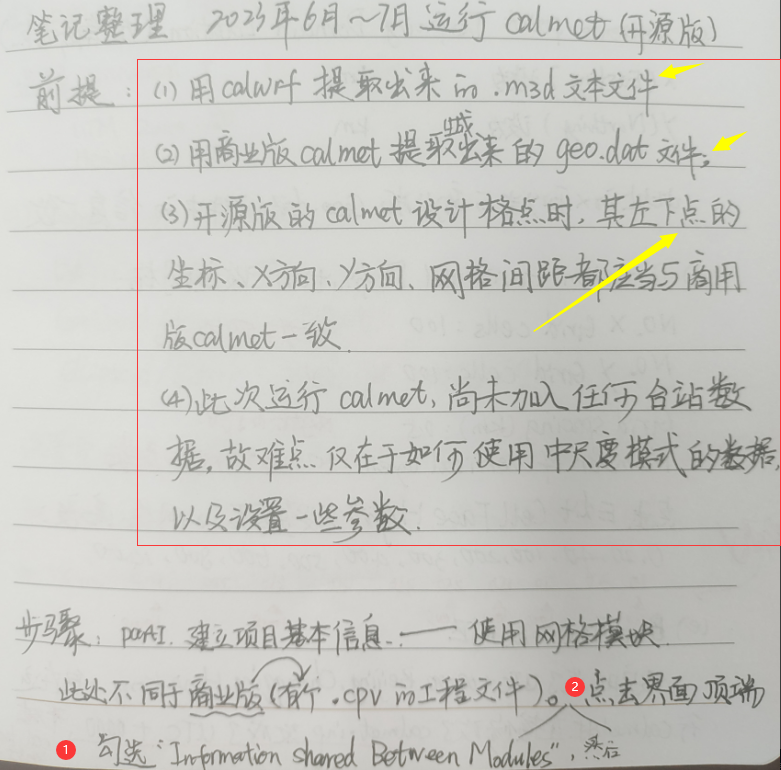 笔记整理 2023年6月~7月运行calmet(开源版)
前提：(1)用calwrf提取出来的.m3d文本文件
(2)用商业版calmet提取生成出来的geo.dat文件；
(3)开源版的calmet设计格点时，其左下点的
坐标、X方向、Y方向、网格间距都应当与商用
版calmet一致.
(4)此次运行calmet，尚未加入任何台站数
据，故难点仅在于如何使用中尺度模式的数据，
以及设置一些参数.
步骤：partI. 建立项目基本信息.——使用网格模块.
此处不同于商业版(有个.cpv的工程文件)。2点击界面顶端
1 勾选"Information shared Between Modules"，然后